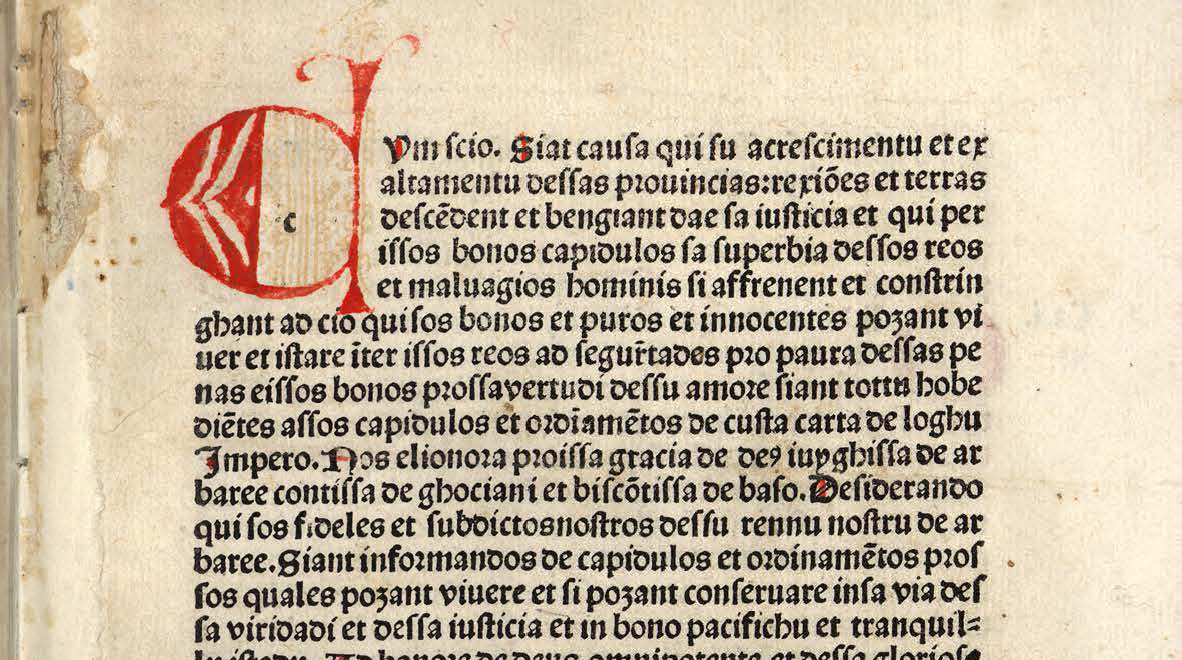 CVm scio. Siat causa qui su acrescimentu et ex
altamentu dessas prouincias: rexiões et terras
descēdent et bengiant dae sa iusticia et qui per
issos bonos capidulos sa superbia dessos reos
et maluagios hominis si affrenent et constrin
ghant ad cio qui sos bonos et puros et innocentes pozant vi
uer et istare īter issos reos ad segur̄tades pro paura dessas pe
nas eissos bonos prossavertudi dessu amore siant tottu hobe
diētes assos capidulos et ordīamētos de custa carta de loghu
Impero. Nos elionora proissa gracia de deꝯ iuyghissa de ar
baree contissa de ghociani et biscōtissa de baso. Desiderando
qui sos fideles et subdictosnostros dessu rennu nostru de ar
baree. Siant informandos de capidulos et ordinamētos pros
sos quales pozant viuere et si pozant conseruare insa via des
sa viridadi et dessa iusticia et in bono pacifichu et tranquil=